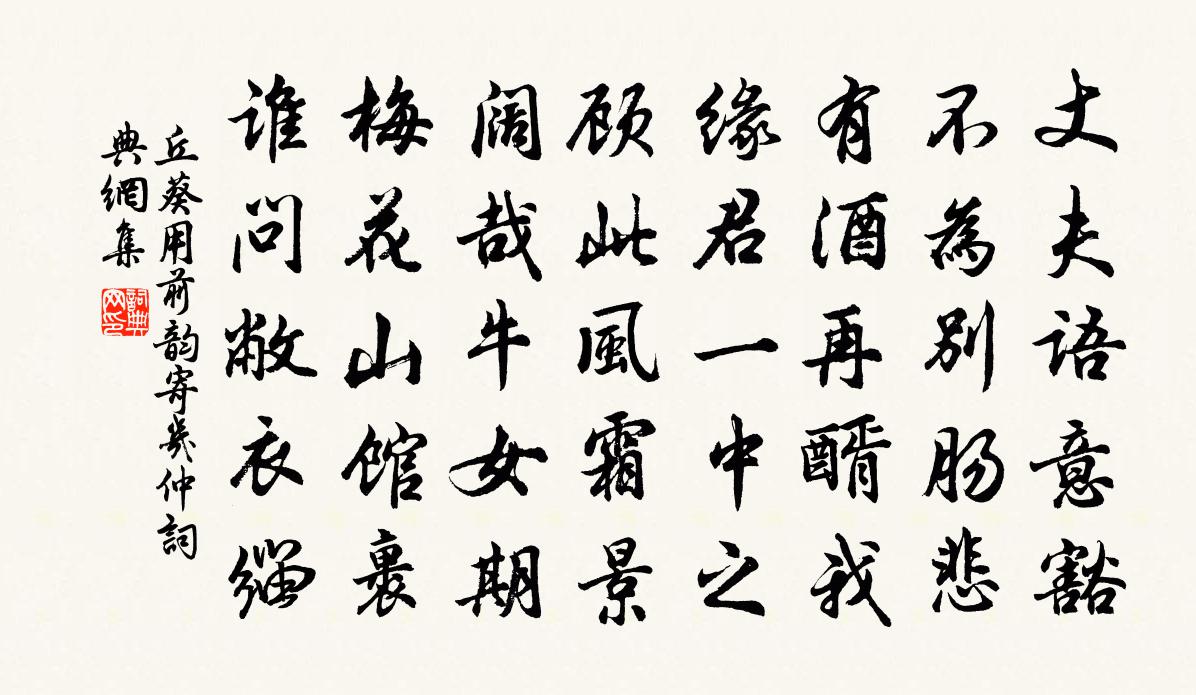 丈夫語意豁
不為別肠悲
有酒再醑我
缘君一中之
顾此風霜景
阔哉牛女期
梅花山馆裏
谁问敝衣缁
丘葵用前韵寄
仲詞
典網集
詞典网印